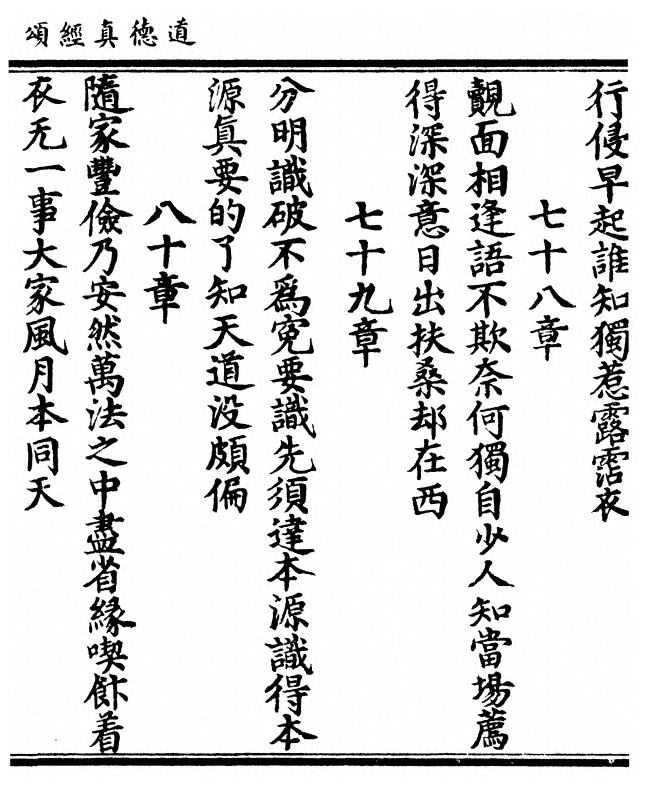 道德真經頌
行侵早起誰知獨惹露霑衣
七十八章
覿面相逢語不欺奈何獨自少人知當場薦
得深深意日出扶桑却在西
七十九章
分明識破不爲寃要識先須達本源識得本
源眞要的了知天道没頗偏
八十章
隨家豐儉乃安然萬法之中盡省緣喫飰着
衣无一事大家風月本同天